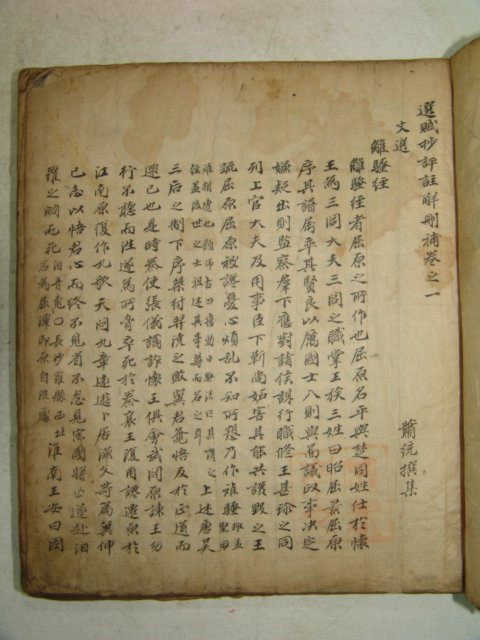 選賦抄評註解刪補卷之一
文選 蕭統撰集
離騷經
離騷經者屈原之所作也屈原名平與楚同姓仕於懷
王爲三閭大夫三閭之職掌王族三姓曰昭屈景屈原
序其譜屬率其賢良以厲國士入則與啚議政事决定
嫌疑出則監察羣下應對諸侯謀行職修王甚珎之同
列上官大夫及用事臣下靳尙妬害其能共譖毁之王
疏屈原屈原被讒憂心煩乱不知所愬乃作離騷 上述唐吳
三后之制下序桀紂羿澆之敗冀君覺悟反於正道而
還已也是時秦使張儀譎詐懷王俱會武関原諫王勿
行不聽而往遂爲所脅卒死於秦襄王復用讒遷原於
江南原復作九歌天問九章遠遊卜居漁父等篇冀伸
己志以悟君心而終不見省不忍見宗國將亡遂赴汨
羅之淵而死 淮南王安曰國